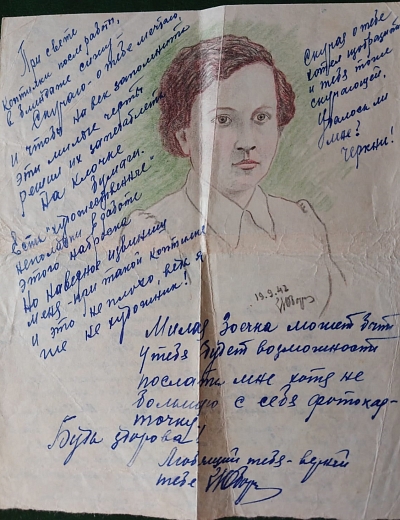 При свете
коптилки после работы,
в блиндаже сижу
Скучаю – о тебе мечтаю,
И чтобы на век запомнить
эти милые черты
решил их запечатлеть
На клочке
бумаги.
Есть "художественные"
неполадки в работе
этого наброска
Но наверное извинишь
меня – при такой коптилке
и это не плохо, ведь я
же не художник!
Скучая о тебе
хотел изобразить
и тебя тоже
скучающей,
удалось ли
мне?
Черкни!
19.9.42
Милая Зоечка может быть
у тебя будет возможность
послать мне хотя не
большую с себя фотокар-
точку.
Будь здорова!
Любящий тебя – верный
тебе